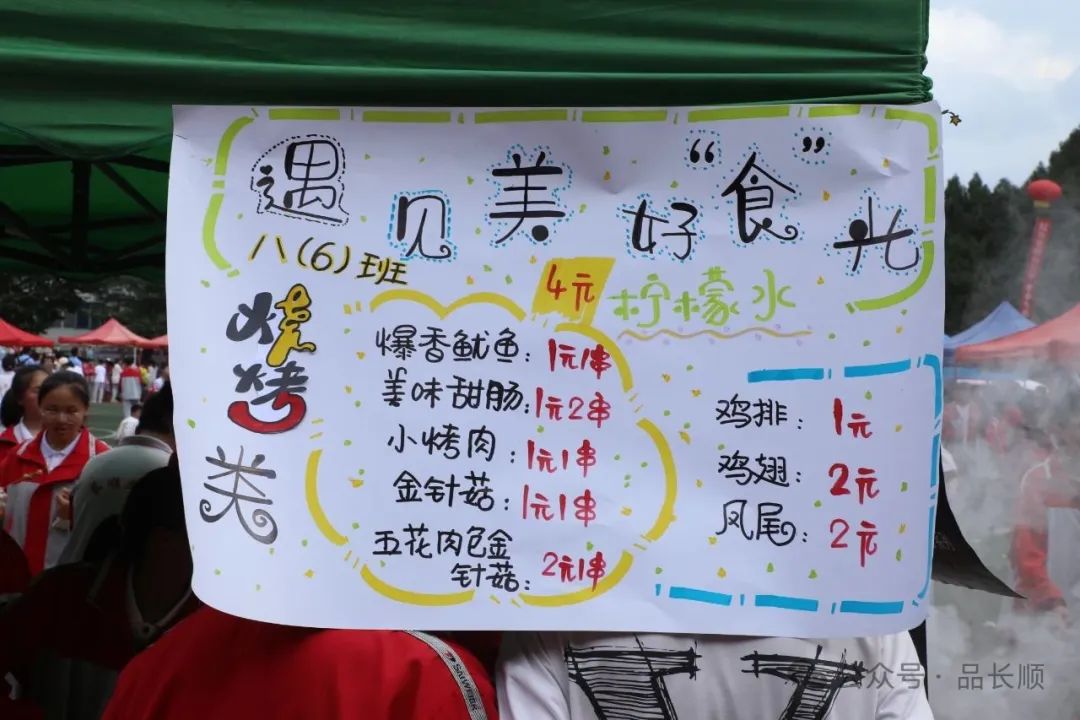 遇见美好“食”光
八(6)班
4元 柠檬水
烧烤类
爆香鱿鱼：1元1串
美味甜肠：1元2串
小烤肉：1元1串
金针菇：1元1串
五花肉包金
针菇：2元1串
鸡排：1元
鸡翅：2元
凤尾：2元
公众号·品长顺